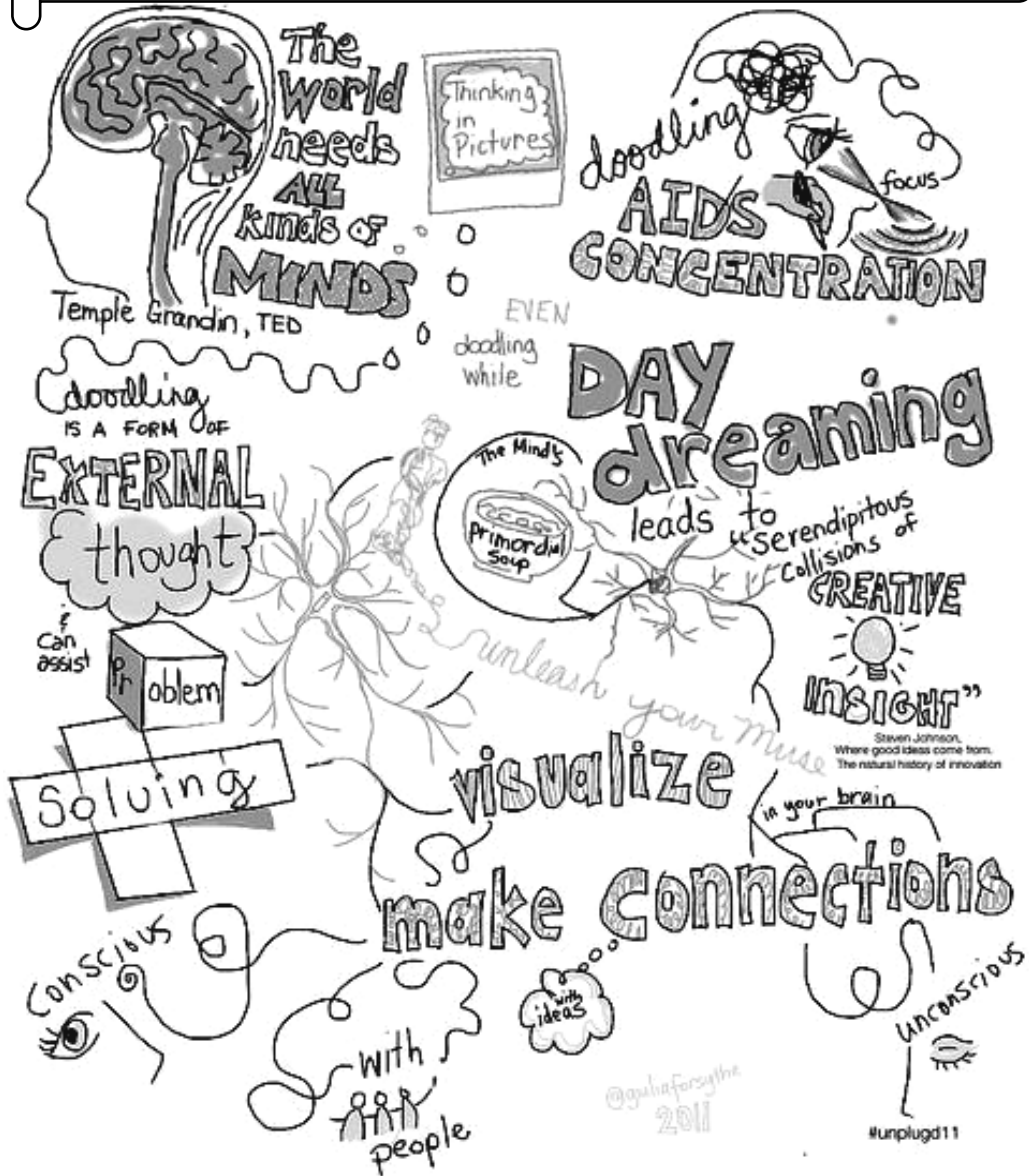 The
World
needs
ALL
kinds of
MINDS
Temple Grandin, TED
Thinking
in
Pictures
doodling
AIDS
CONCENTRATION
focus
EVEN
doodling
while
DAY
dreaming
leads to
"Serendipitous
Collisions of
CREATIVE
INSIGHT"
Steven Johnson,
Where good ideas come from.
The natural history of innovation
doodling
IS A FORM OF
EXTERNAL
thought
&
can
assist
Problem
Solving
The Mind's
primordial
soup
unleash your muse
visualize
in your brain
make connections
Conscious
with
people
with
ideas
unconscious
@giuliaforsythe
2011
#unplugd11